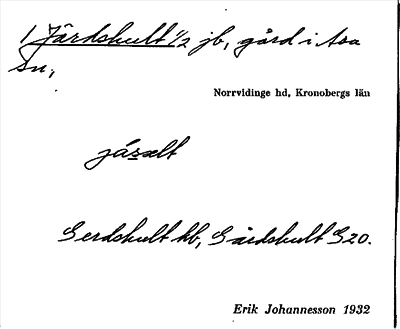 1 Järdshult 1/2 jb, gård i Asa
sn,
Norrvidinge hd, Kronobergs län
jásält
Gerdshult hb, Gärdshult G20.
Erik Johannesson 1932